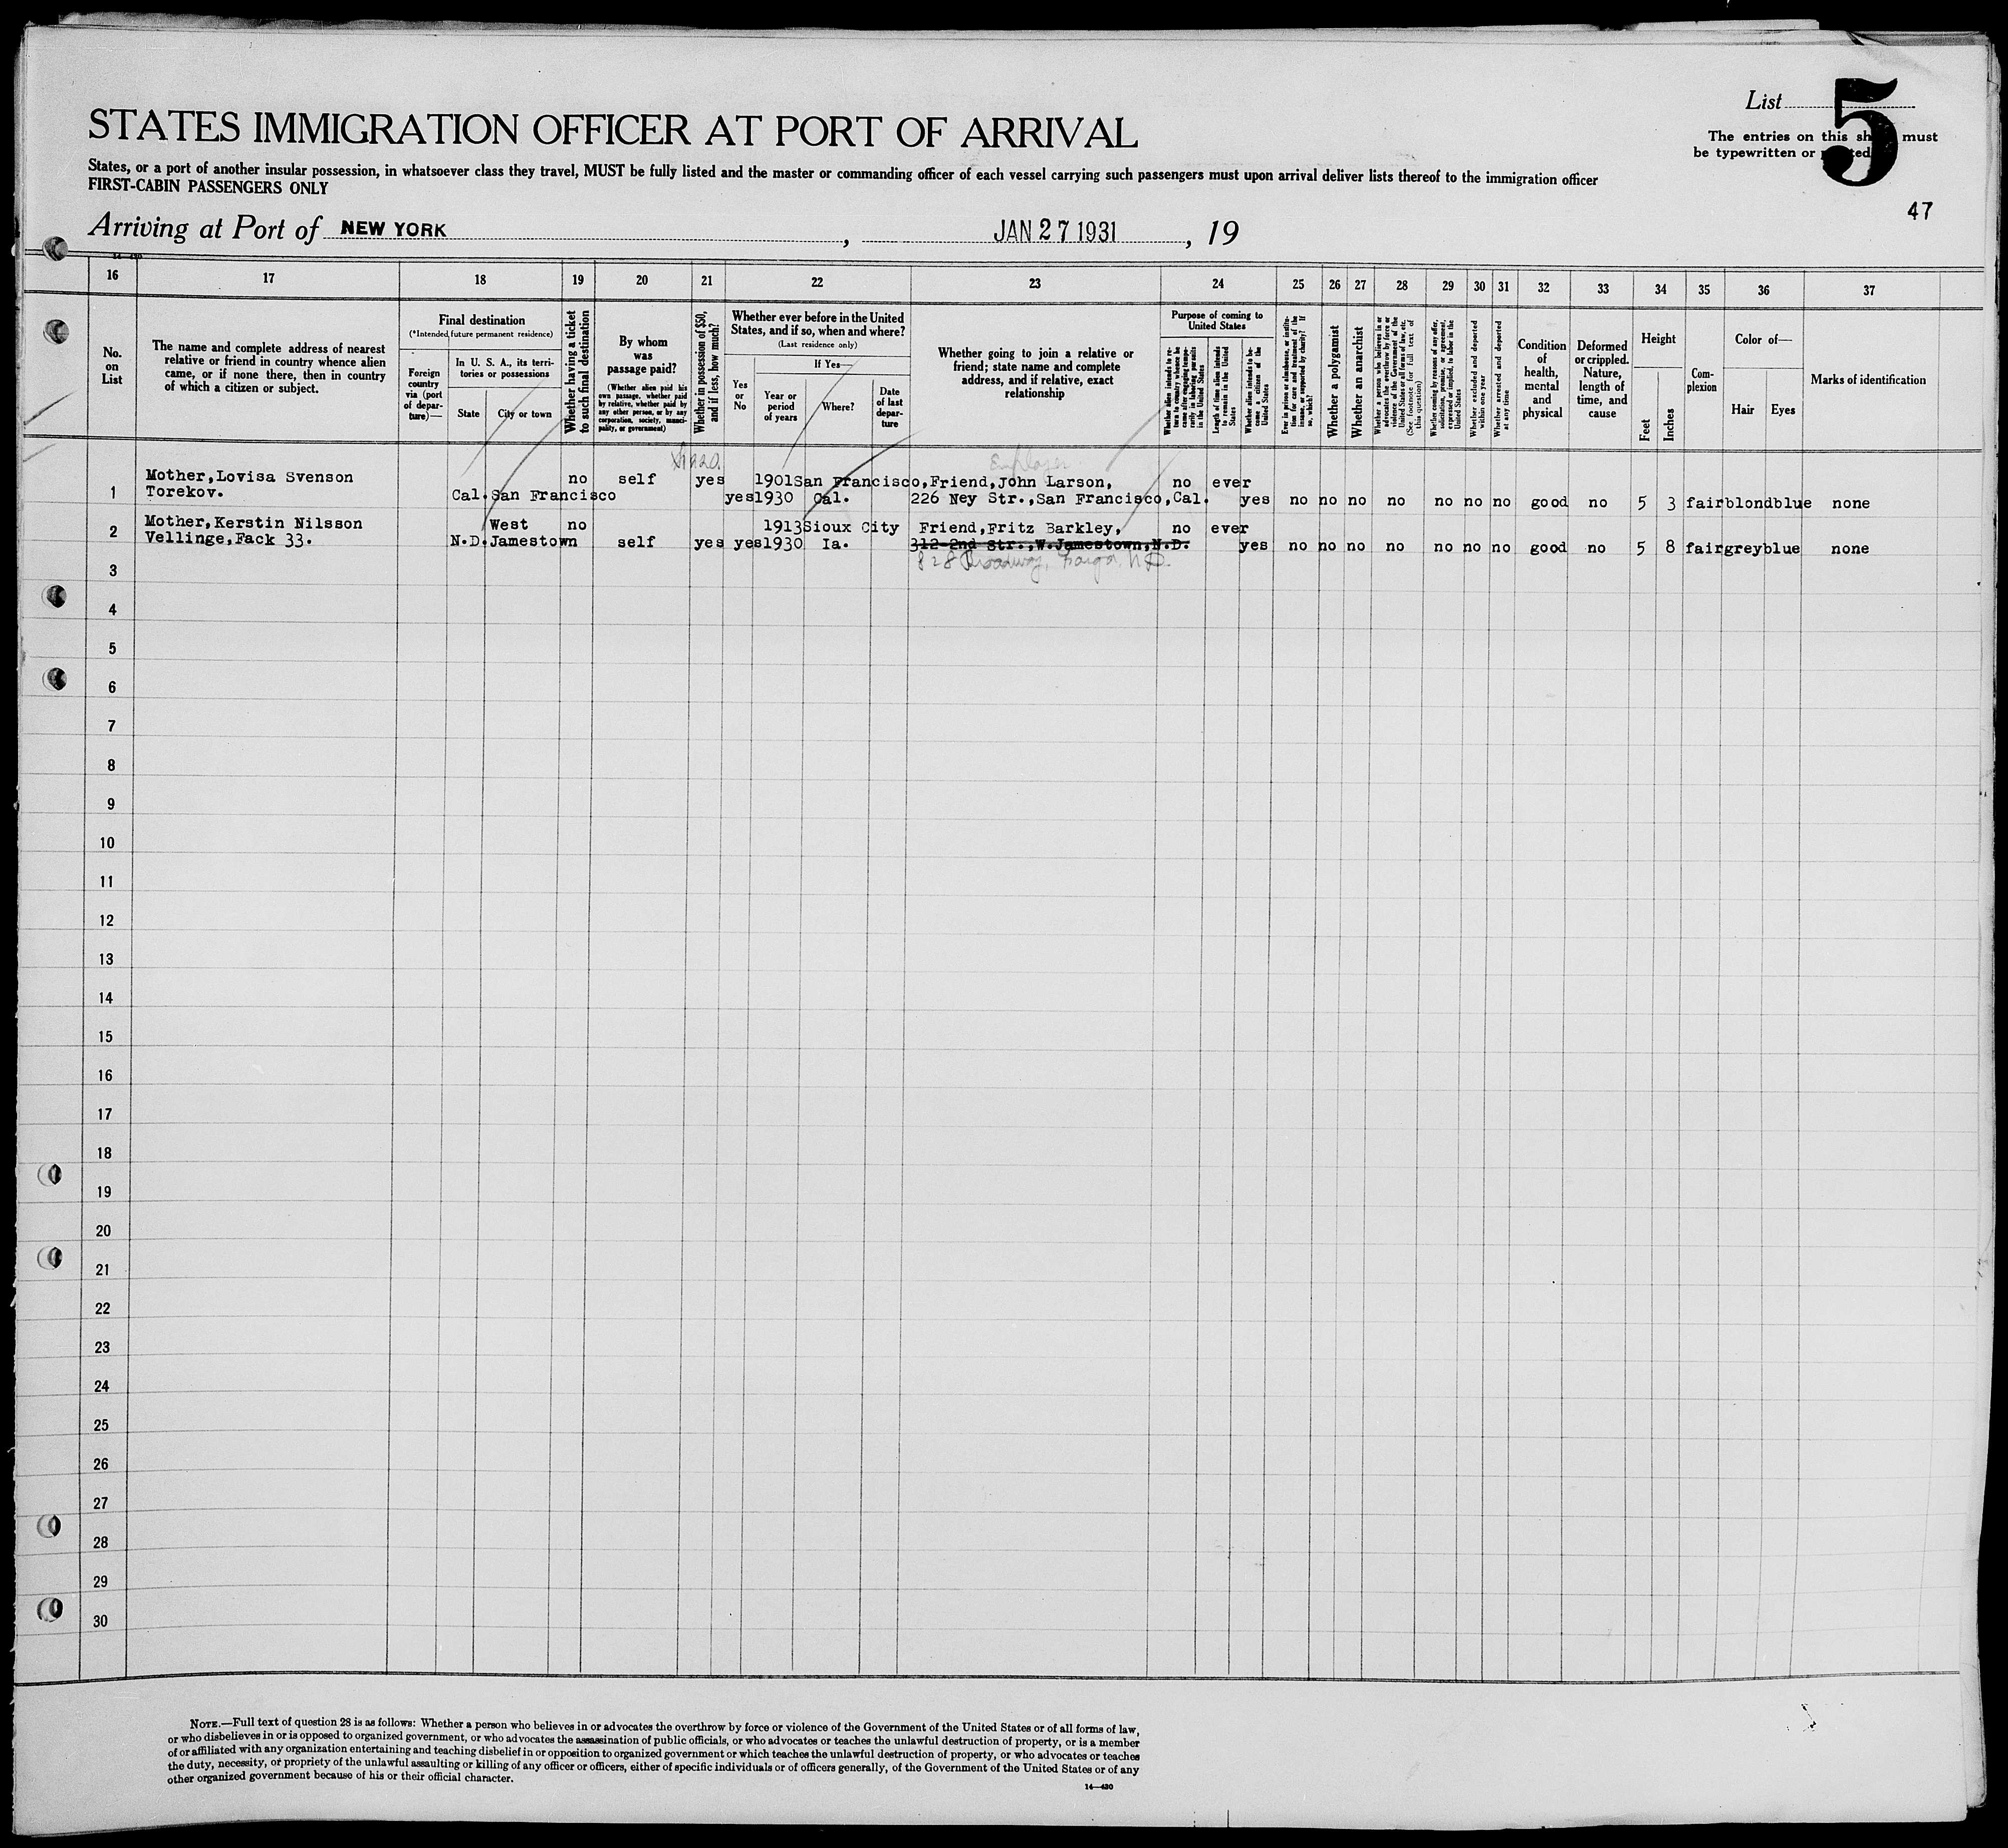 List 5
STATES IMMIGRATION OFFICER AT PORT OF ARRIVAL
The entries on this sh must
be typewritten or ted
States, or a port of another insular possession, in whatsoever class they travel, MUST be fully listed and the master or commanding officer of each vessel carrying such passengers must upon arrival deliver lists thereof to the immigration officer
FIRST-CABIN PASSENGERS ONLY
47
Arriving at Port of NEW YORK, JAN 27 1931, 19
16 17 18 19 20 21 22 23 24 25 26 27 28 29 30 31 32 33 34 35 36 37
No. on List
The name and complete address of nearest
relative or friend in country whence alien
came, or if none there, then in country
of which a citizen or subject.
Final destination
(*Intended future permanent residence)
Foreign
country
via (port
of depar-
ture)—
In U. S. A., its terri-
tories or possessions
State
City or town
Whether having a ticket
to such final destination
By whom
was
passage paid?
(Whether alien paid his
own passage, whether paid
by relative, whether paid by
any other person, or by any
corporation, society, munici-
pality, or government)
Whether in possession of $50,
and if less, how much?
Whether ever before in the United
States, and if so, when and where?
(Last residence only)
Yes
or
No
If Yes—
Year or
period
of years
Where?
Date
of last
depar-
ture
Whether going to join a relative or
friend; state name and complete
address, and if relative, exact
relationship
Purpose of coming to
United States
Whether alien intends to re-
turn to country whence he
came after engaging tempo-
rarily in laboring pursuits
in the United States
Length of time alien intends
to remain in the United
States
Whether alien intends to be-
come a citizen of the
United States
Ever in prison or almshouse, or institu-
tion for care and treatment of the
insane, or supported by charity? If
so, which?
Whether a polygamist
Whether an anarchist
Whether a person who believes in or
advocates the overthrow by force or
violence of the Government of the
United States or all forms of law, etc.
(See footnote for full text of
this question)
Whether coming by reasons of any offer,
solicitation, promise, or agreement,
expressed or implied, to labor in the
United States
Whether excluded and deported
within one year
Whether arrested and deported
at any time
Condition
of
health,
mental
and
physical
Deformed
or crippled.
Nature,
length of
time, and
cause
Height
Feet
Inches
Com-
plexion
Color of—
Hair
Eyes
Marks of identification
Employer
Mother,Lovisa Svenson no self yes 1901 San Francisco,Friend,John Larson, no ever
1 Torekov. Cal. San Francisco yes 1930 Cal. 226 Ney Str.,San Francisco,Cal. yes no no no no no no no good no 5 3 fair blond blue none
Mother,Kerstin Nilsson West no 1913 Sioux City Friend,Fritz Barkley, no ever
2 Vellinge,Fack 33. N.D. Jamestown self yes yes 1930 Ia. 312-2nd Str.,W.Jamestown,N.D. yes no no no no no no no good no 5 8 fair grey blue none
828 Broadway, Fargo, N.D.
3
4
5
6
7
8
9
10
11
12
13
14
15
16
17
18
19
20
21
22
23
24
25
26
27
28
29
30
NOTE.—Full text of question 28 is as follows: Whether a person who believes in or advocates the overthrow by force or violence of the Government of the United States or of all forms of law,
or who disbelieves in or is opposed to organized government, or who advocates the assassination of public officials, or who advocates or teaches the unlawful destruction of property, or is a member
of or affiliated with any organization entertaining and teaching disbelief in or opposition to organized government or which teaches the unlawful destruction of property, or who advocates or teaches
the duty, necessity, or propriety of the unlawful assaulting or killing of any officer or officers, either of specific individuals or of officers generally, of the Government of the United States or of any
other organized government because of his or their official character.
14—430